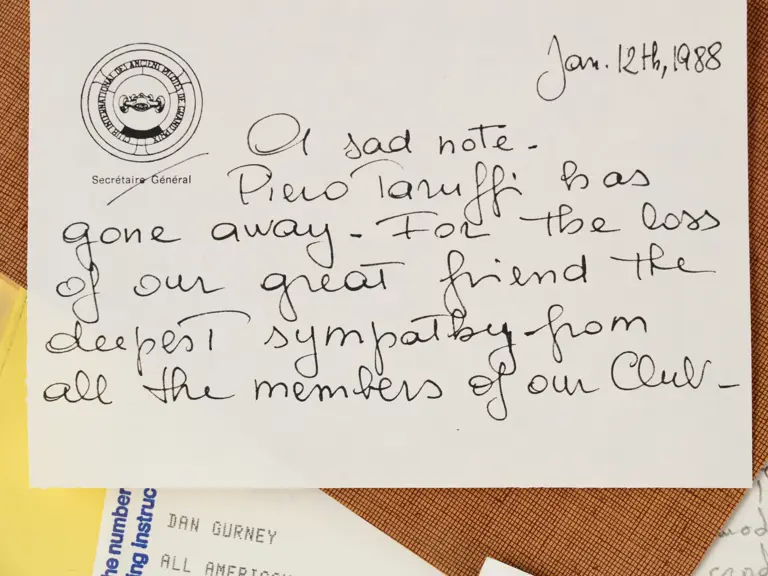 Jan. 12th, 1988
CLUB INTERNATIONAL DES ANCIENS PILOTES DE GRAND PRIX
Secrétaire Général
A sad note -
Piero Taruffi has
gone away - For the loss
of our great friend the
deepest sympathy from
all the members of our Club -
he number
ing instruc
DAN GURNEY
ALL AMERICAN